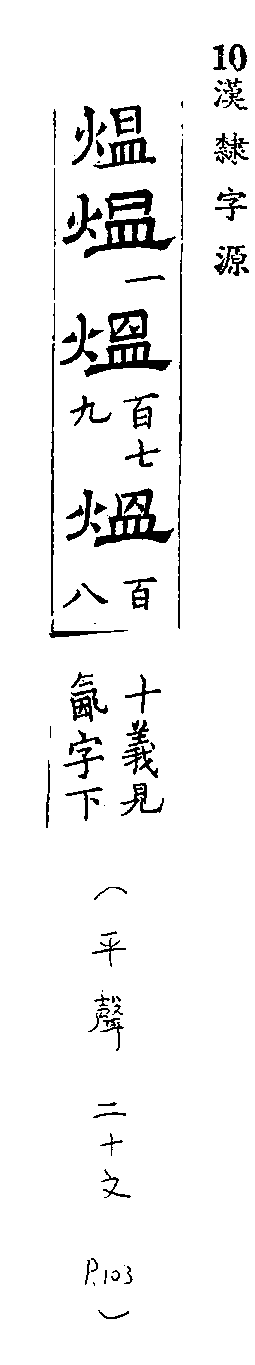 10漢隸字源
煴煴一熅百七九熅百八十義見氤字下
（平聲 二十文 P.103）